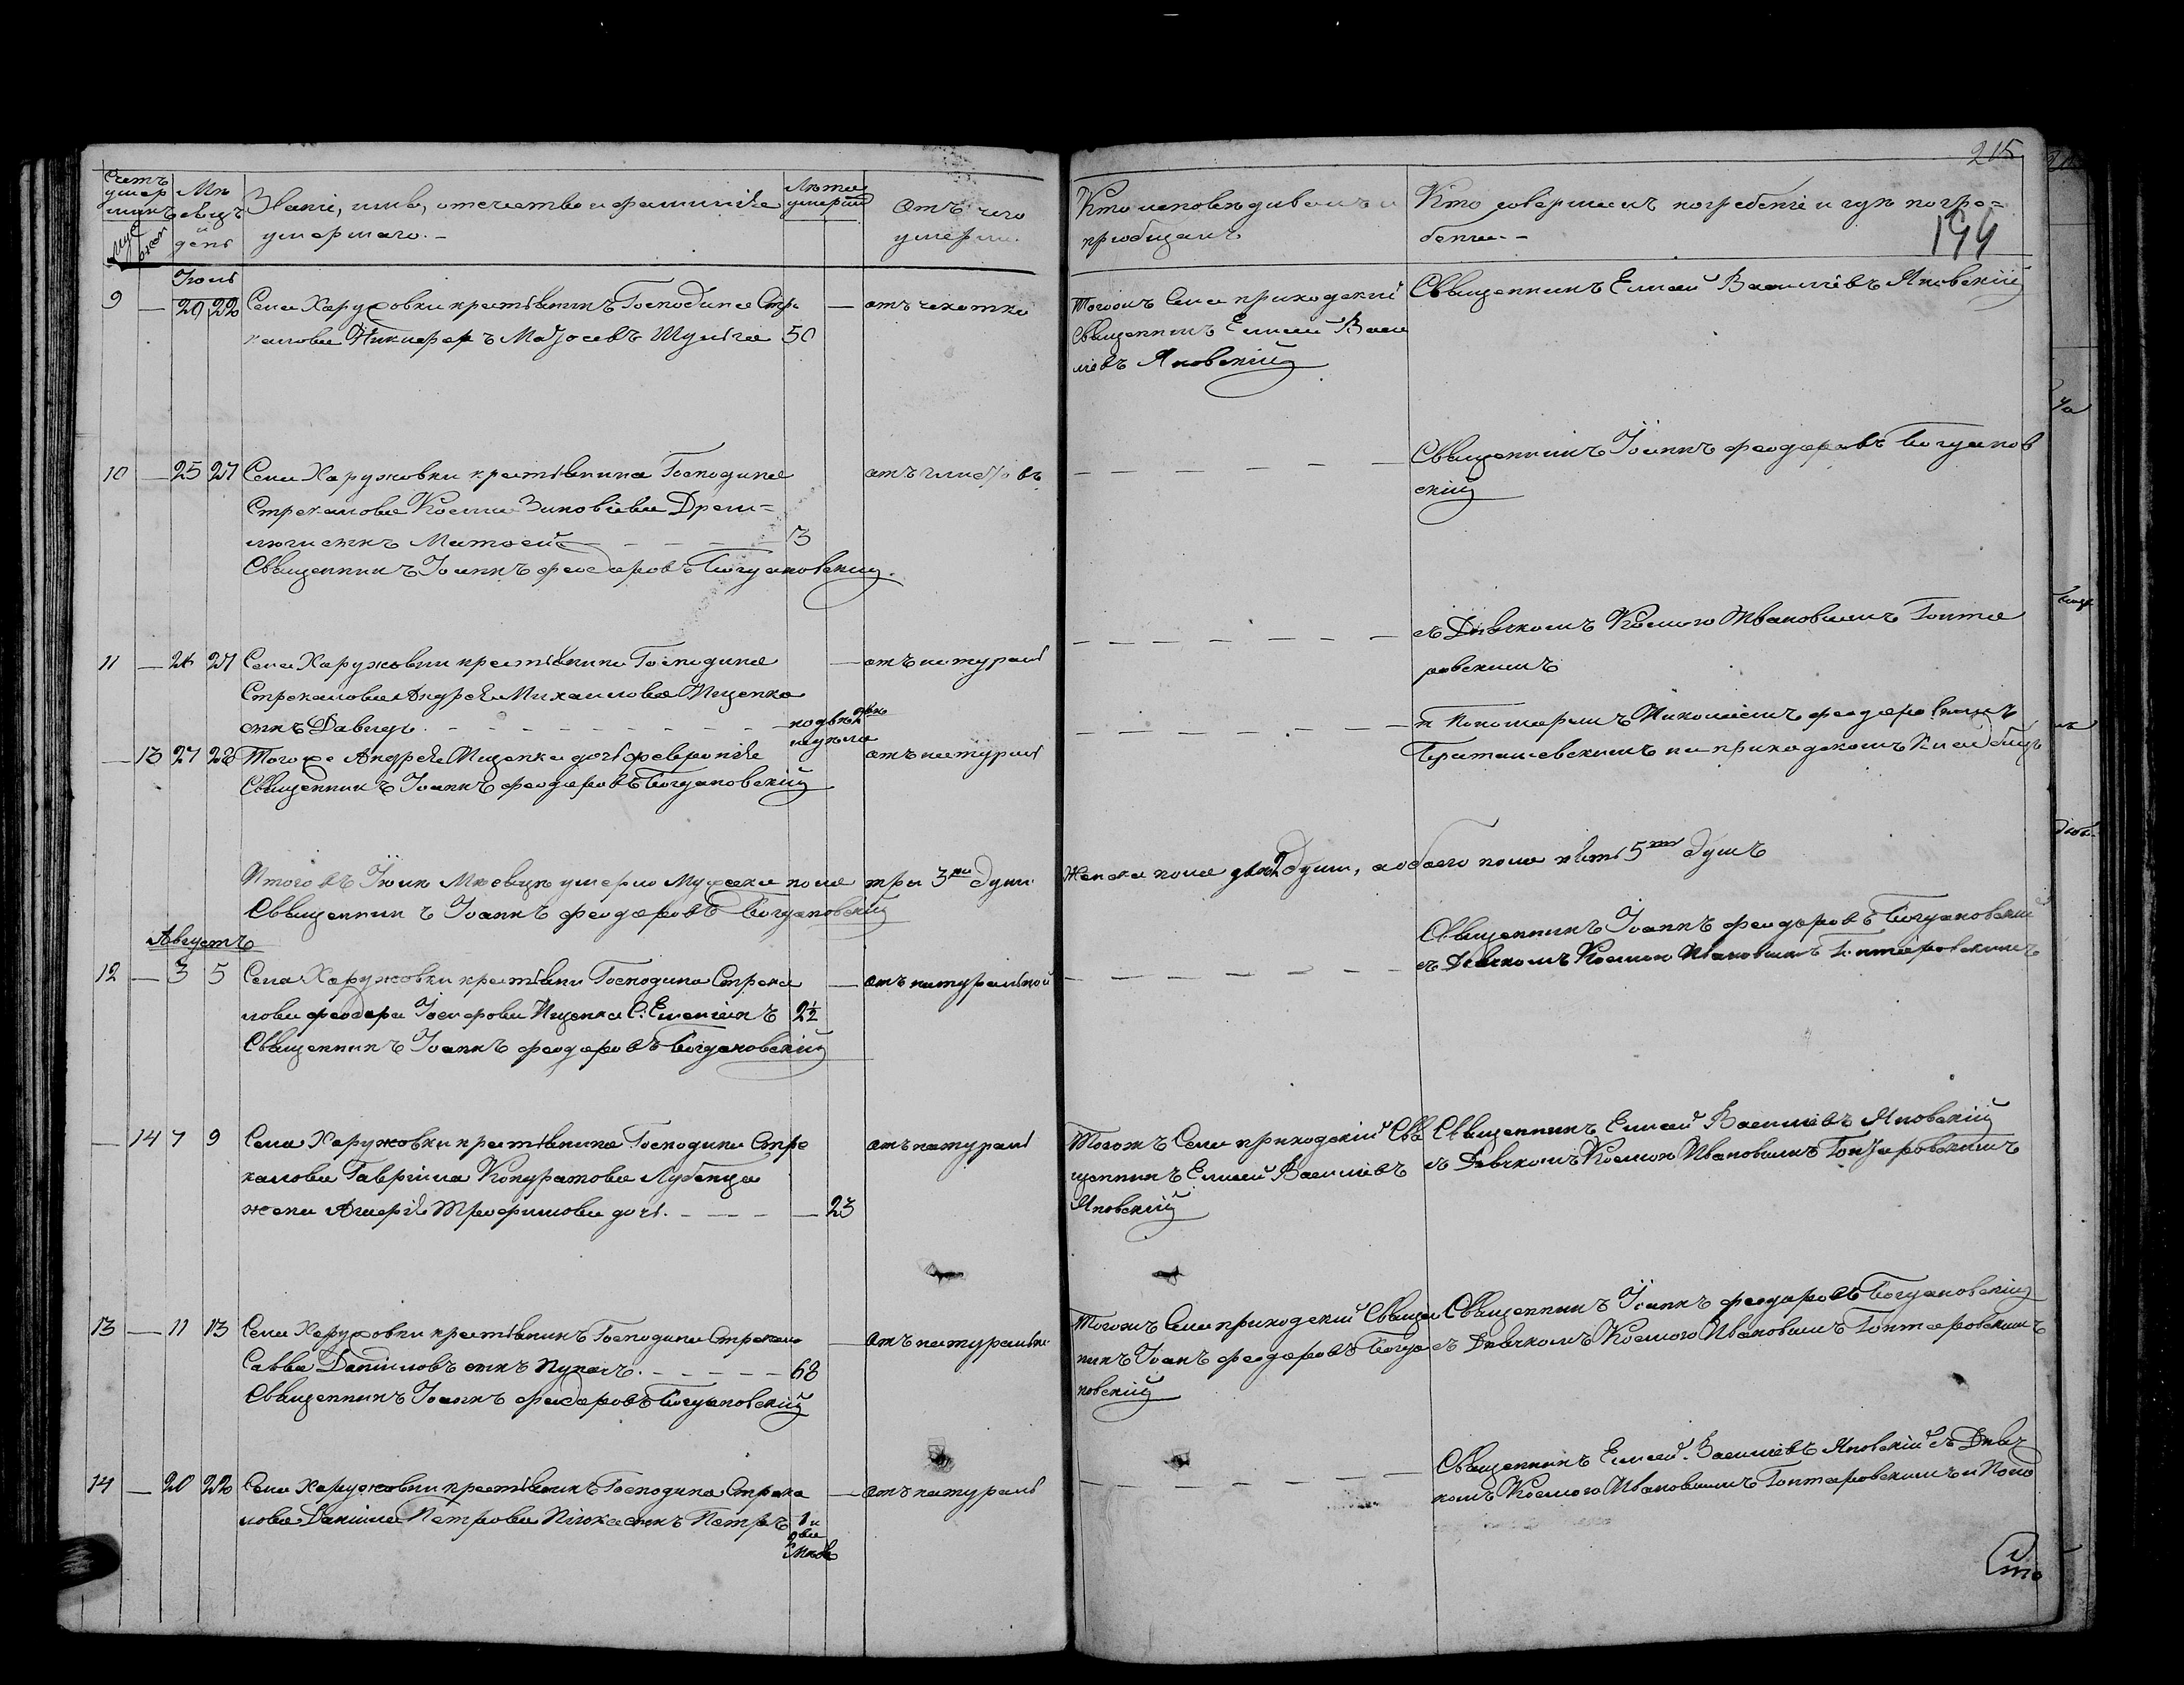 215
194
Счетъ умер шихъ
Муж жен
Мѣ сяцъ и день
Званіе, имя, отечество и фамилія
умершаго. -
Лѣта умерш
Отъ чего
умерли.
Кто исповѣдывалъ и
пріобщалъ
Кто совершилъ погребеніе и гдѣ погре=
бены. -
Іюль
9 — 20 22 Села Харужовки крестьянинъ Господина Стре
каловы Никифоръ Шульга 50
— отъ чахотки
Тогожъ Села приходскій
Священникъ Елисей Васи
лієвъ Яновскій
Священникъ Елисей Василіевъ Яновскій
10 — 25 27 Села Харужовки крестьянина Господина
Стрекалова Космы Зиновіева
сынъ Матѳей — — — — 3
Священникъ Іоаннъ Феодоровъ Богдановскій.
отъ глистовъ
— — — — — —
Священникъ Іоаннъ Феодоровъ Богданов
скій
11 — 26 27 Села Харужовки крестьянина Господина
Стрекалова Андрея Михаилова Ищенка
сынъ Давидъ. — — — — — — — по два
— отъ натураль
— — — — — — —
съ Дьячкомъ Космою Ивановымъ Гонта
ровскимъ
— 13 27 28 Тогоже Андрея Ищенка дочь Февронія
Священникъ Іоаннъ Феодоровъ Богдановскій
отъ натураль
— — — — — — —
и Пономаремъ Николаемъ Феодоровымъ
на приходскомъ Кладбищѣ
Итого въ Іюлѣ Мѣсяцѣ умерло Мужска пола три 3 ри души
Женска пола двѣ 2 души, а обоего пола пять 5 ть душъ
Священникъ Іоаннъ Феодоровъ Богдановскій
Августъ
12 — 3 5 Села Харужовки крестьяни Господина Стрека
лова Феодора Іосифова Ищенка С. 2½
Священникъ Іоаннъ Феодоровъ Богдановскій
— отъ натуральной
— — — — — —
Священникъ Іоаннъ Феодоровъ Богдановскій
съ Дьячкомъ Космою Ивановымъ Гонтаровскимъ
— 14 7 9 Села Харужовки крестьянина Господина Стре
калова Гавріила Кондратова Лубенца
жена Трофимова дочь. — — — — 23
отъ натураль
Тогожъ Села приходскій Свя
щенникъ Елисей Василіевъ
Яновскій
Священникъ Елисей Василіевъ Яновскій
съ Дьячкомъ Космою Ивановымъ Гонтаровскимъ
13 — 11 13 Села Харужовки крестьянинъ Господина Стрекало
Савва Даніиловъ сынъ — — — — — 68
Священникъ Іоаннъ Феодоровъ Богдановскій
— отъ натуральн
Тогожъ Села приходскій Священ
никъ Іоанъ Феодоровъ Богда
новскій
Священникъ Іоаннъ Феодоровъ Богдановскій
съ Дьячкомъ Космою Ивановымъ Гонтаровскимъ
14 — 20 22 Села Харужовки крестьянинъ Господина Стрека
лова Даніила Петрова сынъ Петръ 1 и
два
мѣсяц
— отъ натураль
— — — — — —
Священникъ Елисей Василіевъ Яновскій съ Дьяч
комъ Космою Ивановымъ Гонтаровскимъ и Поно